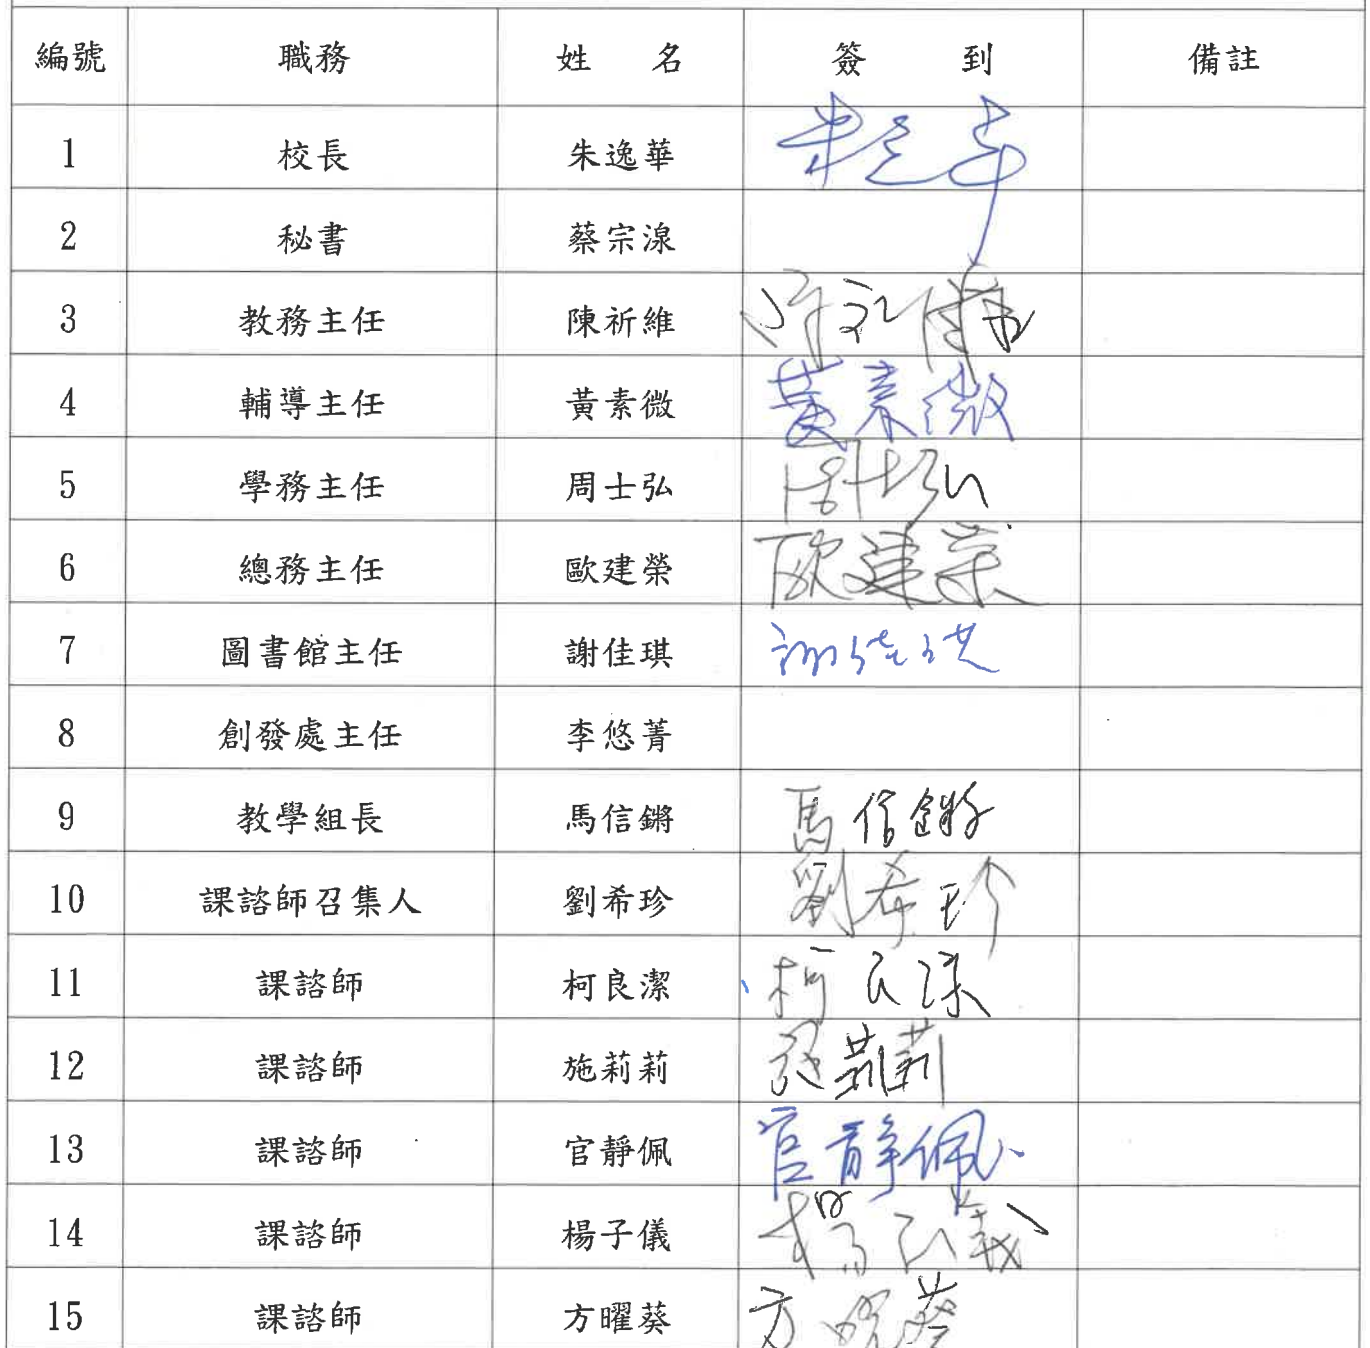 編號 職務 姓 名 簽 到 備註
1 校長 朱逸華 朱逸華
2 秘書 蔡宗湶
3 教務主任 陳祈維 陳祈維
4 輔導主任 黃素微 黃素微
5 學務主任 周士弘 周士弘
6 總務主任 歐建榮 歐建榮
7 圖書館主任 謝佳琪 謝佳琪
8 創發處主任 李悠菁
9 教學組長 馬信鏘 馬信鏘
10 課諮師召集人 劉希珍 劉希珍
11 課諮師 柯良潔 柯良潔
12 課諮師 施莉莉 施莉莉
13 課諮師 官靜佩 官靜佩
14 課諮師 楊子儀 楊子儀
15 課諮師 方曜葵 方曜葵